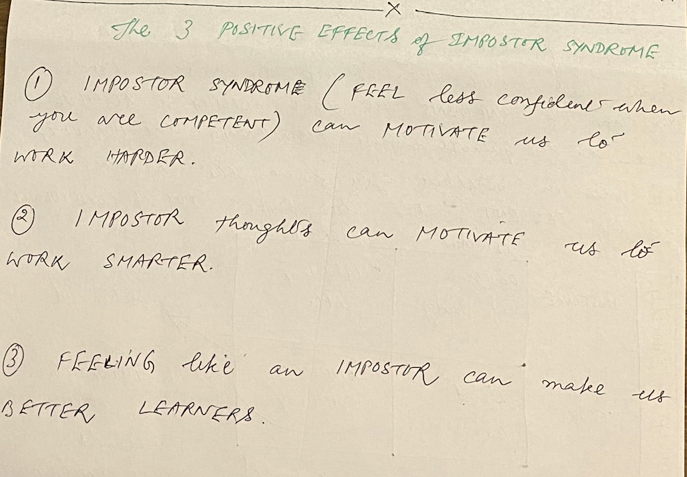 X
The 3 POSITIVE EFFECTS of IMPOSTOR SYNDROME
① IMPOSTOR SYNDROME (FEEL less confident when
you are COMPETENT) can MOTIVATE us to
WORK HARDER.
② IMPOSTOR thoughts can MOTIVATE us to
WORK SMARTER.
③ FEELING like an IMPOSTOR can make us
BETTER LEARNERS.